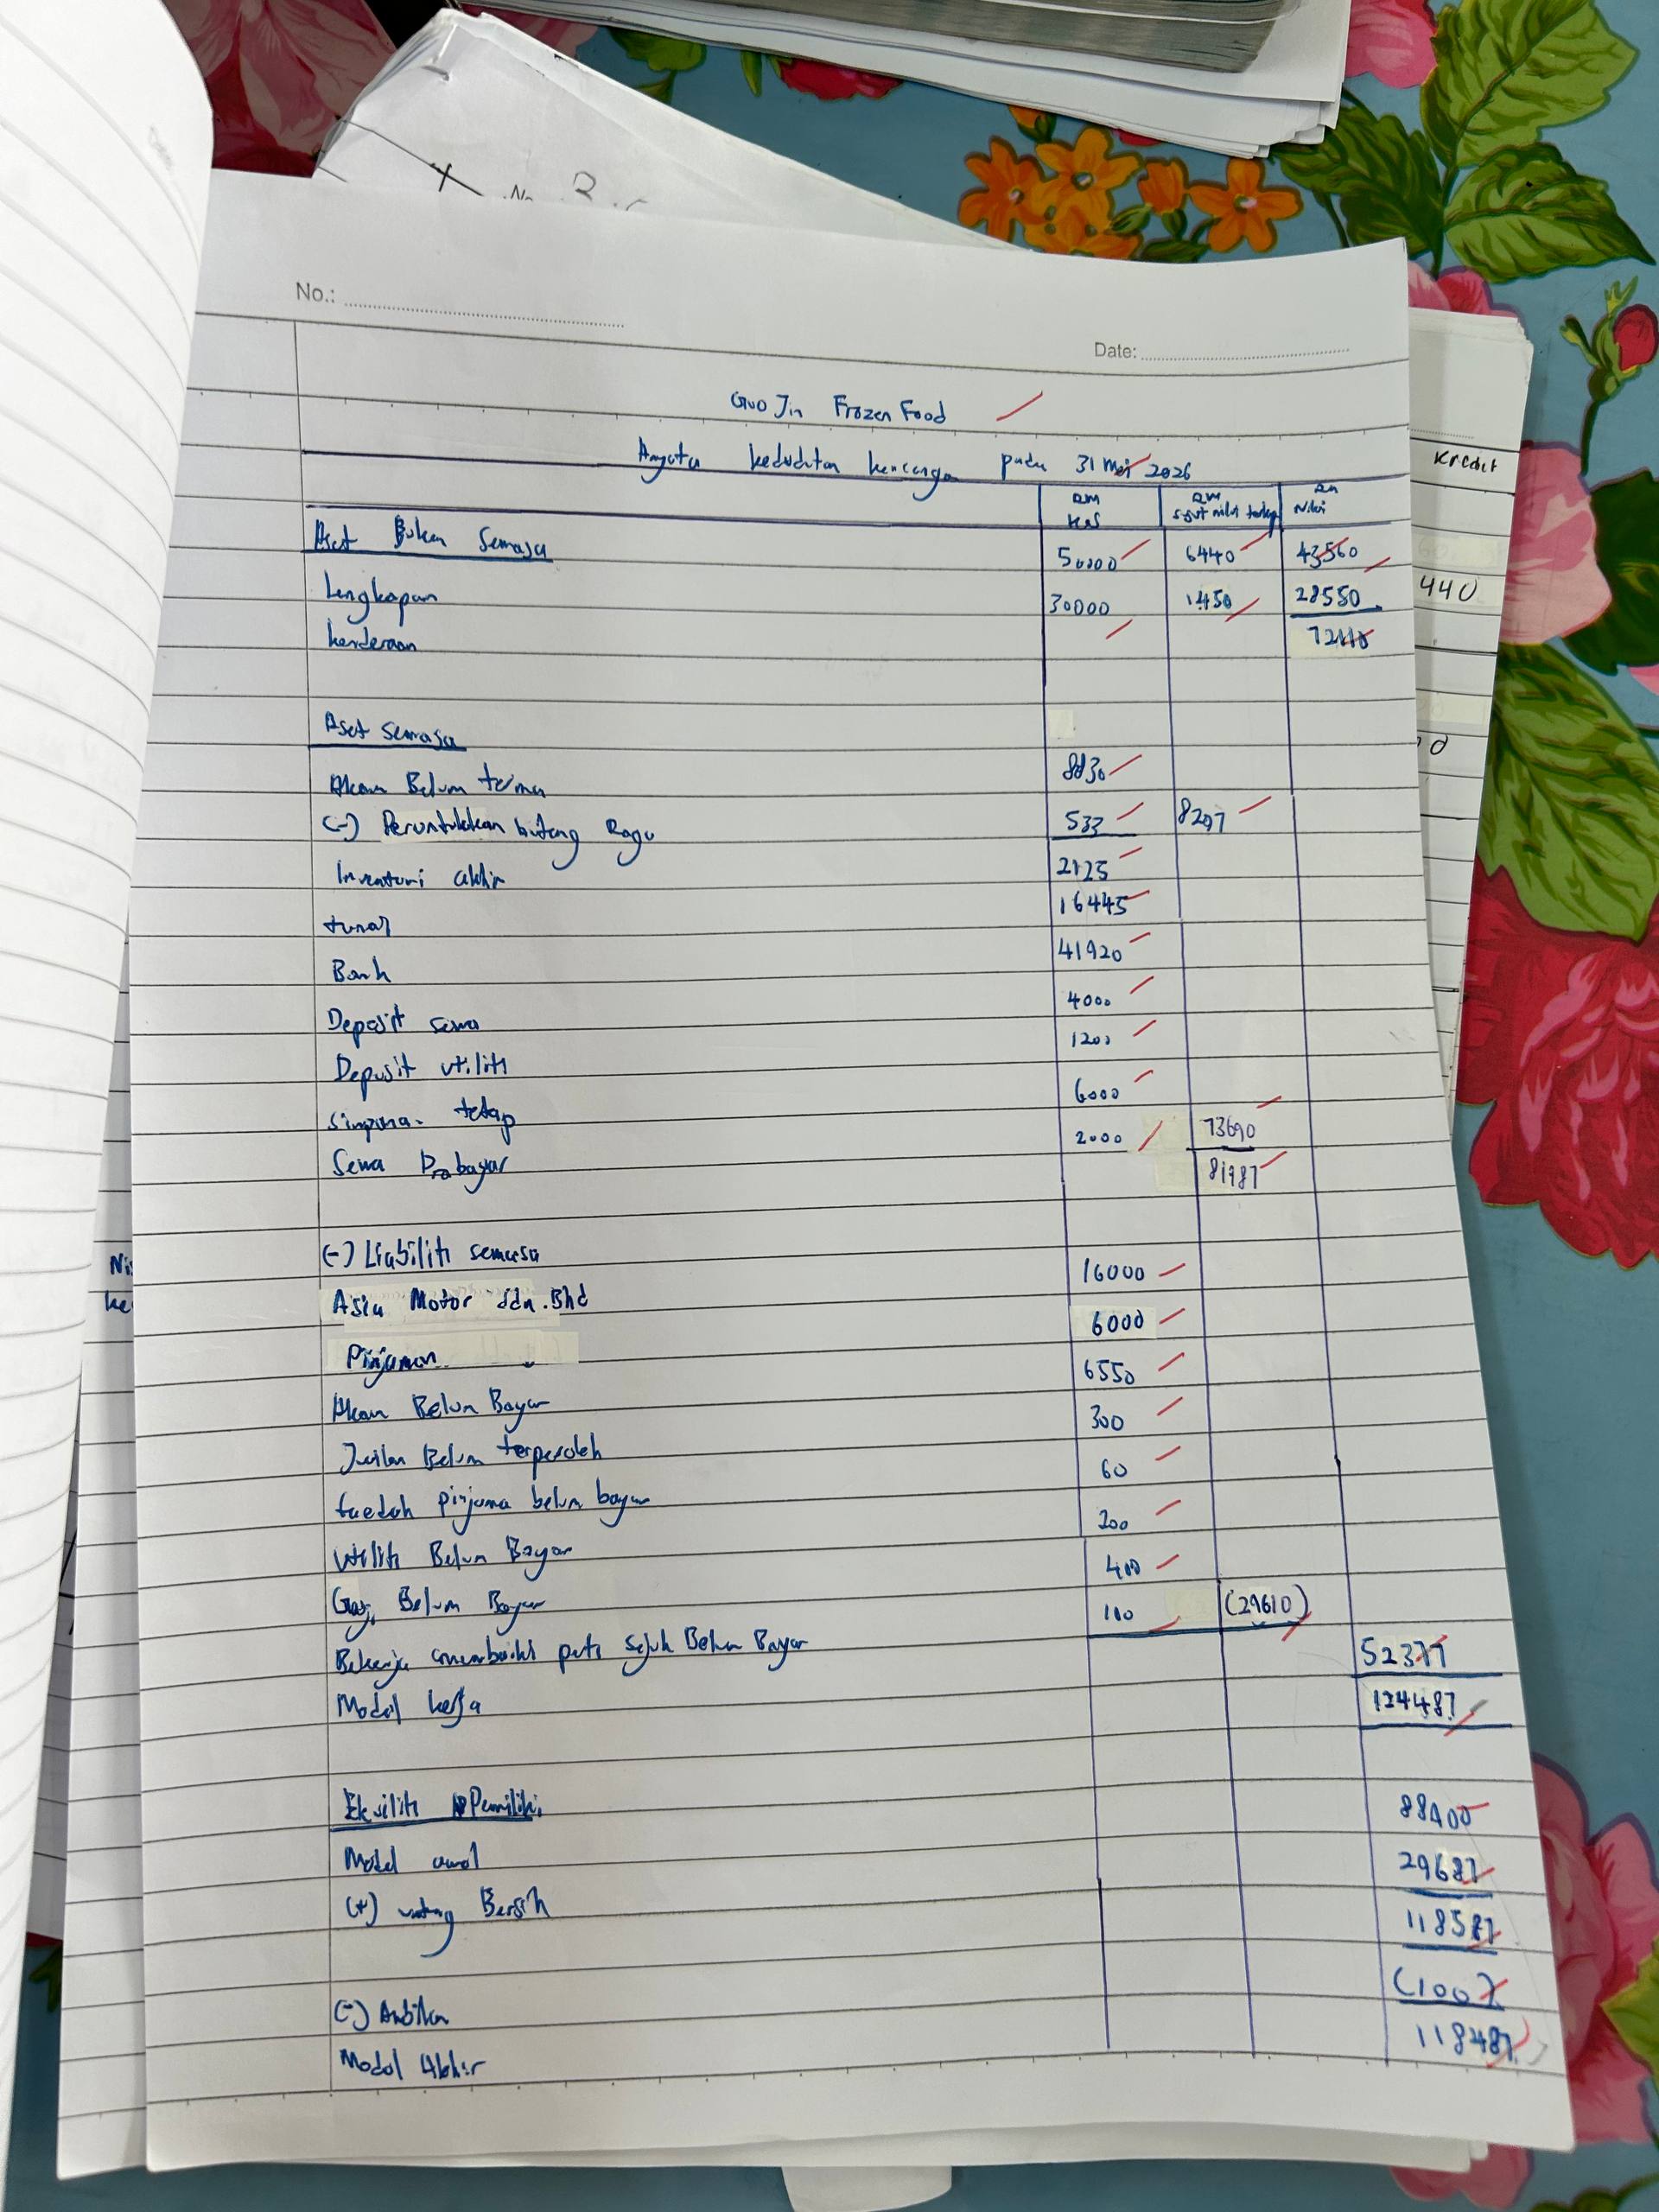 No. 2.
No.:
Date:
Guo Jin Frozen Food
Anyata kedudukan kewangan pada 31 Mei 2026
RM RM RM
kos susut nilai terkup Nilai
Aset Bukan Semasa 50000 6440 43560
Lengkapan 30000 1450 28550
kenderaan 72110
Aset semasa
Akaun Belum terima 8830
(-) Peruntukkan hutang Ragu 533 8297
Inventori akhir 2125
tunai 16445
Bank 41920
Deposit sewa 4000
Deposit utiliti 1200
Simpanan tetap 6000
Sewa Prabayar 2000 73690
81987
(-) Liabiliti semasa
Asia Motor Sdn.Bhd 16000
Pinjaman 6000
Akaun Belum Bayar 6550
Jualan Belum terperoleh 300
faedah pinjama belum bayar 60
Utiliti Belum Bayar 200
Gaji Belum Bayar 400
peti sejuk Belum Bayar 100 (29610)
Modal kerja 52377
124487
Ekuiliti Pemilik
Modal awal 88900
(+) untung Bersih 29687
118587
(-) Ambilan (100)
Modal Akhir 118487
Kredit
440